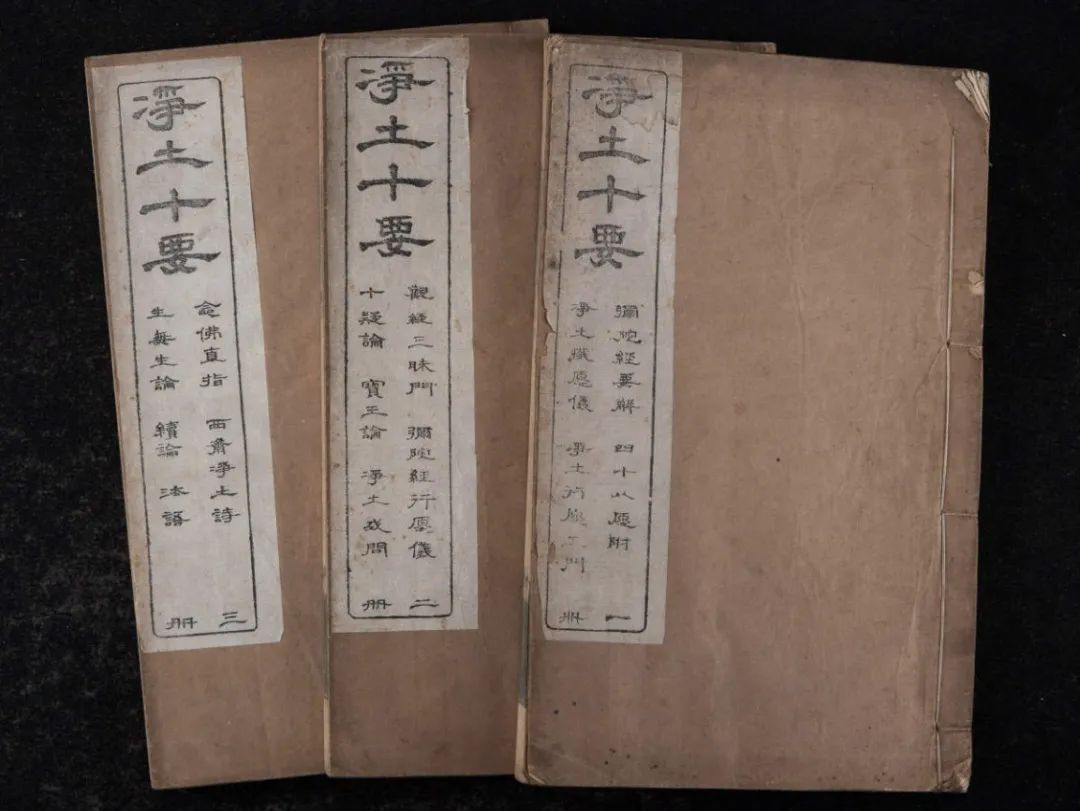 淨土十要
彌陀經要解 四十八愿附
淨土懺愿儀 淨土行愿二門
一册
淨土十要
觀經三昧門 彌陀經行愿儀
十疑論 寶王論 淨土或問
二册
淨土十要
念佛直指 西齋淨土詩
生無生論 續論 法語
三册